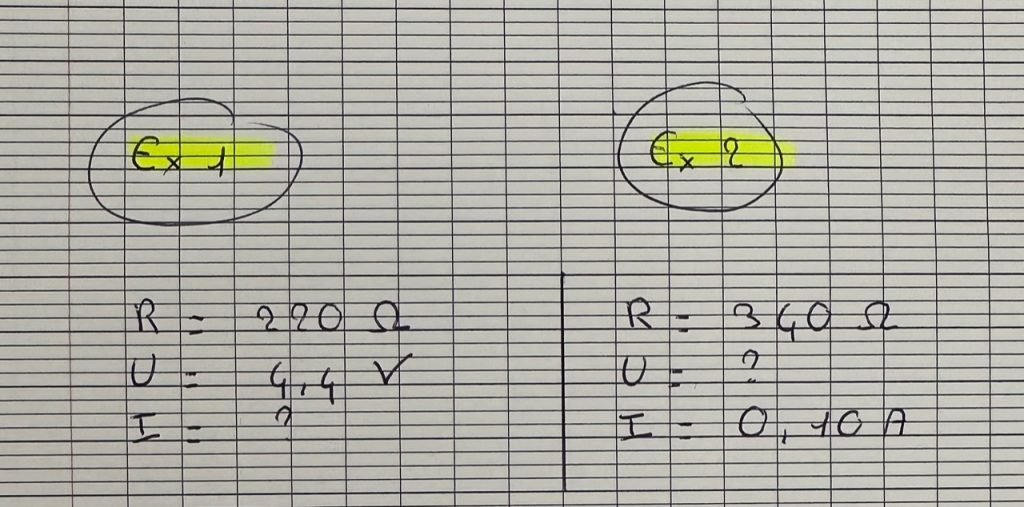 Ex 1
R = 220 Ω
U = 4,4 V
I = ?
Ex 2
R = 340 Ω
U = ?
I = 0,10 A